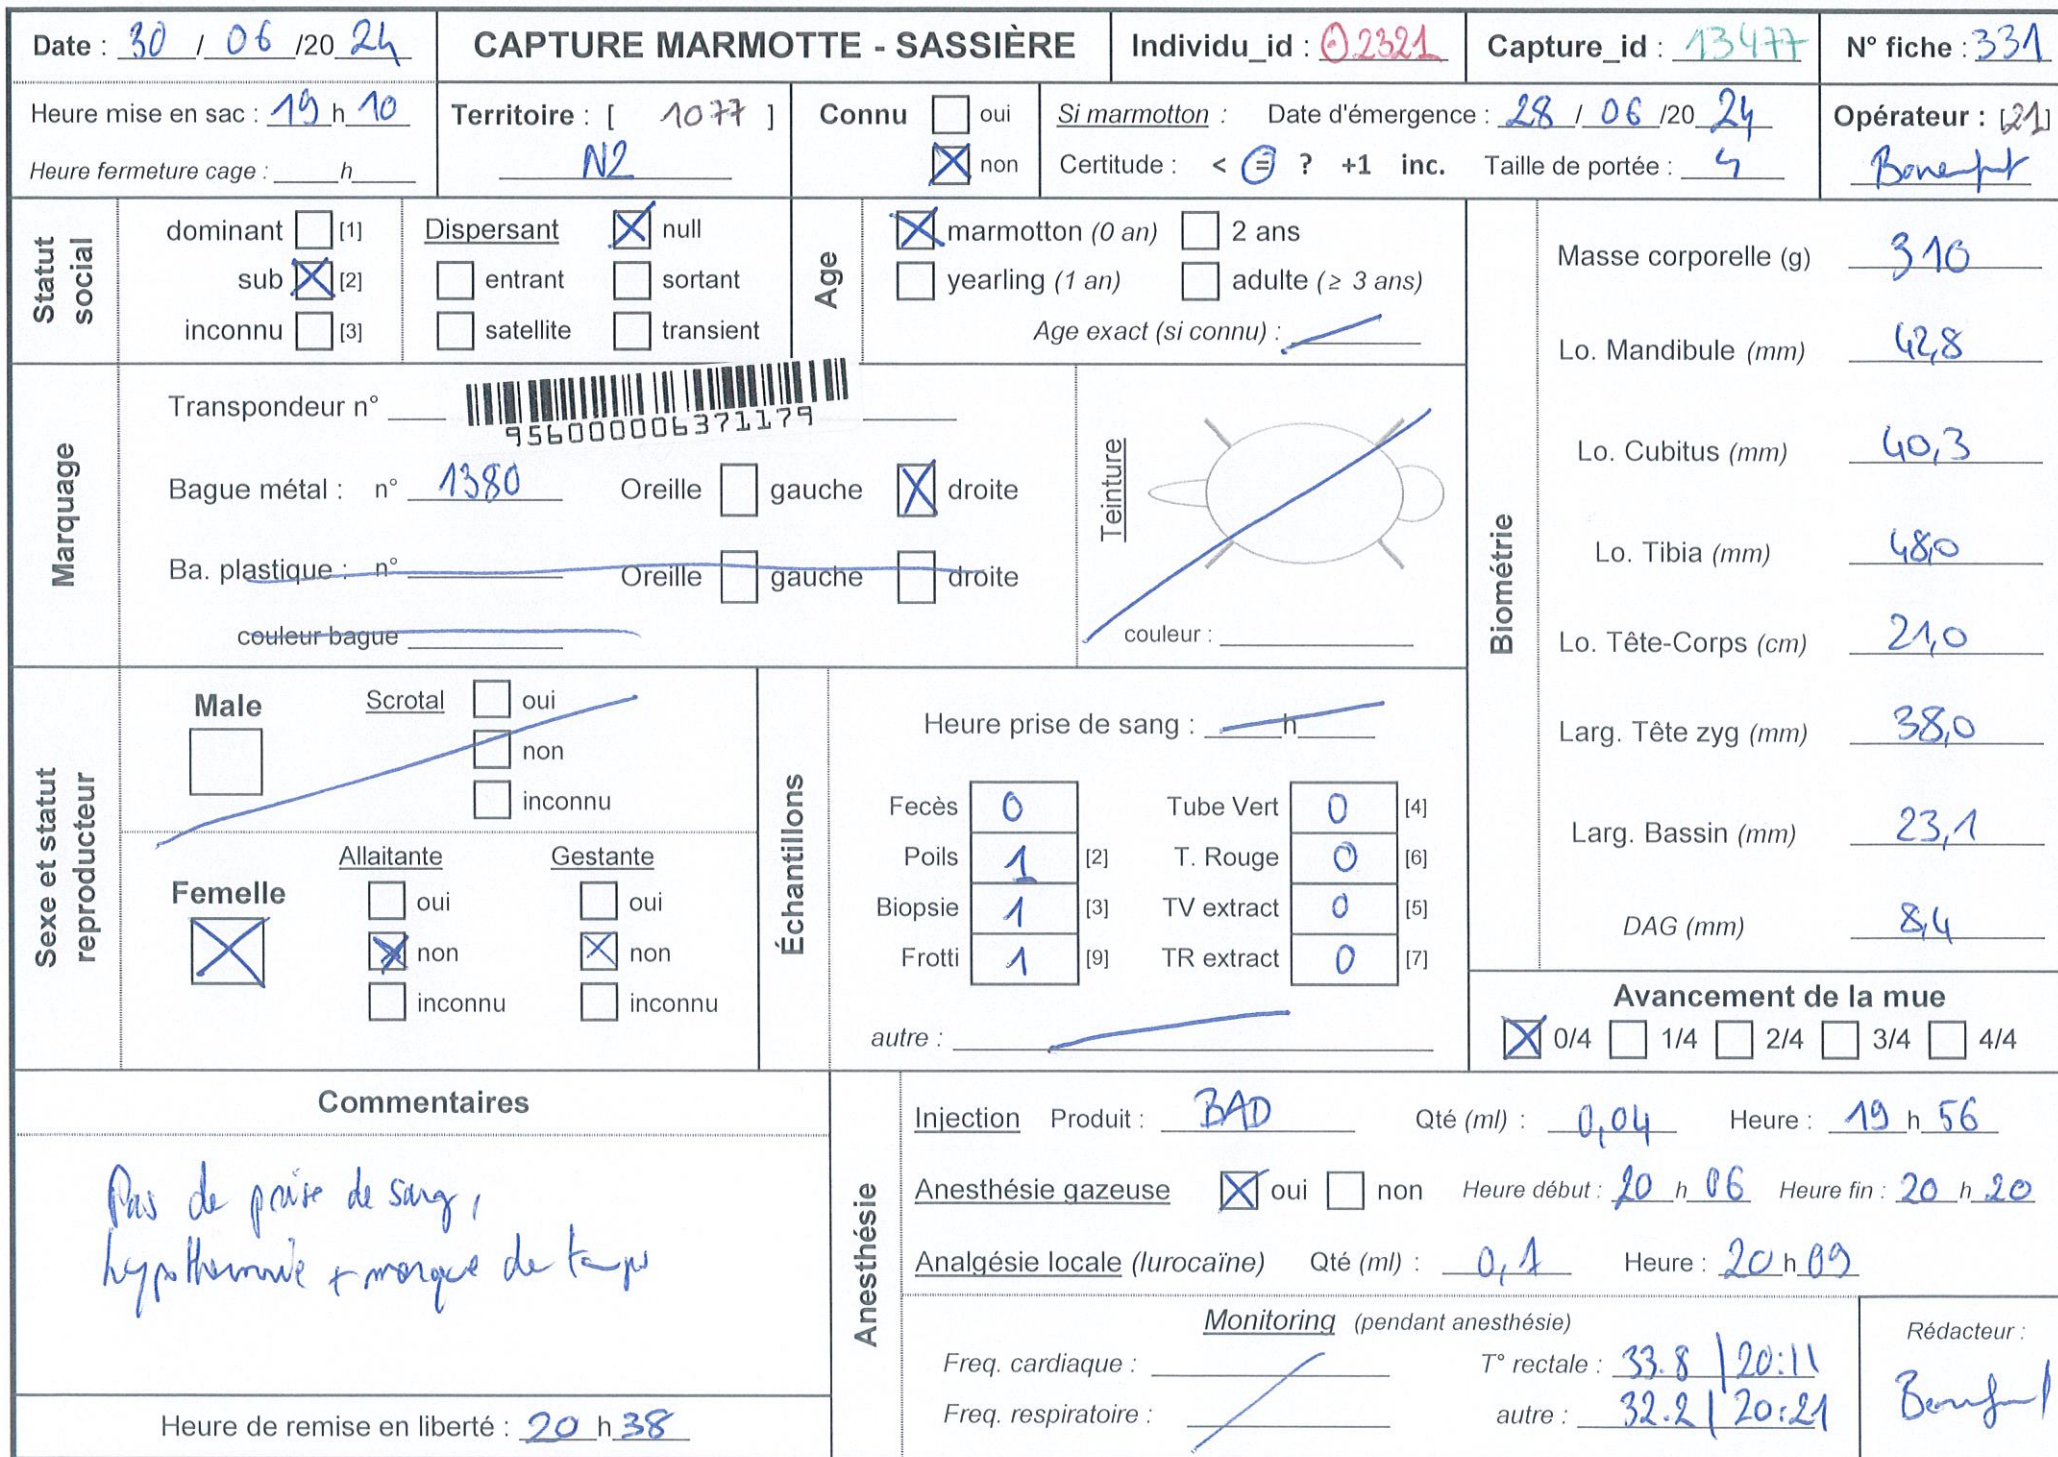 Date : 30 / 06 /20 24
CAPTURE MARMOTTE - SASSIÈRE
Individu_id : 2321
Capture_id : 13477
N° fiche : 331
Heure mise en sac : 19 h 10
Heure fermeture cage : ____h____
Territoire : [ 1077 ]
N2
Connu
oui
non
Si marmotton : Date d'émergence : 28 / 06 /20 24
Certitude : < = ? +1 inc. Taille de portée : 4
Opérateur : [21]
Statut social
dominant [1]
sub [2]
inconnu [3]
Dispersant
null
entrant
sortant
satellite
transient
Age
marmotton (0 an)
2 ans
yearling (1 an)
adulte (≥ 3 ans)
Age exact (si connu) :
Marquage
Transpondeur n°
956000006371179
Bague métal : n° 1380 Oreille gauche droite
Ba. plastique : n° Oreille gauche droite
couleur bague
Teinture
couleur :
Biométrie
Masse corporelle (g) 310
Lo. Mandibule (mm) 42,8
Lo. Cubitus (mm) 40,3
Lo. Tibia (mm) 48,0
Lo. Tête-Corps (cm) 21,0
Larg. Tête zyg (mm) 38,0
Larg. Bassin (mm) 23,1
DAG (mm) 8,4
Sexe et statut reproducteur
Male
Scrotal
oui
non
inconnu
Femelle
Allaitante
oui
non
inconnu
Gestante
oui
non
inconnu
Échantillons
Heure prise de sang : ____h____
Fecès 0 Tube Vert 0 [4]
Poils 1 [2] T. Rouge 0 [6]
Biopsie 1 [3] TV extract 0 [5]
Frotti 1 [9] TR extract 0 [7]
autre :
Avancement de la mue
0/4 1/4 2/4 3/4 4/4
Commentaires
Pas de prise de sang,
hypothermie + manque de temps
Heure de remise en liberté : 20 h 38
Anesthésie
Injection Produit : BAD Qté (ml) : 0,04 Heure : 19 h 56
Anesthésie gazeuse oui non Heure début : 20 h 06 Heure fin : 20 h 20
Analgésie locale (lurocaïne) Qté (ml) : 0,1 Heure : 20 h 09
Monitoring (pendant anesthésie)
Freq. cardiaque : T° rectale : 33.8 | 20:11
Freq. respiratoire : autre : 32.2 | 20:21
Rédacteur :